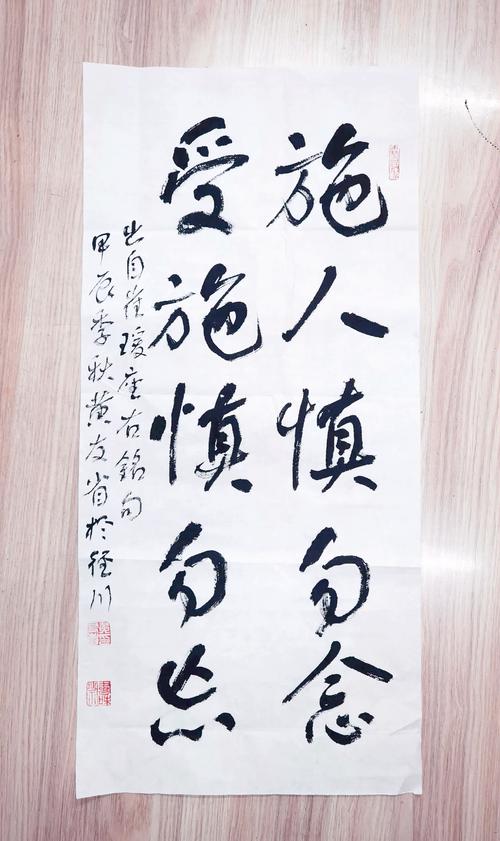 施人慎勿念
受施慎勿忘
出自崔瑗座右铭句
甲辰季秋黄友省於经川